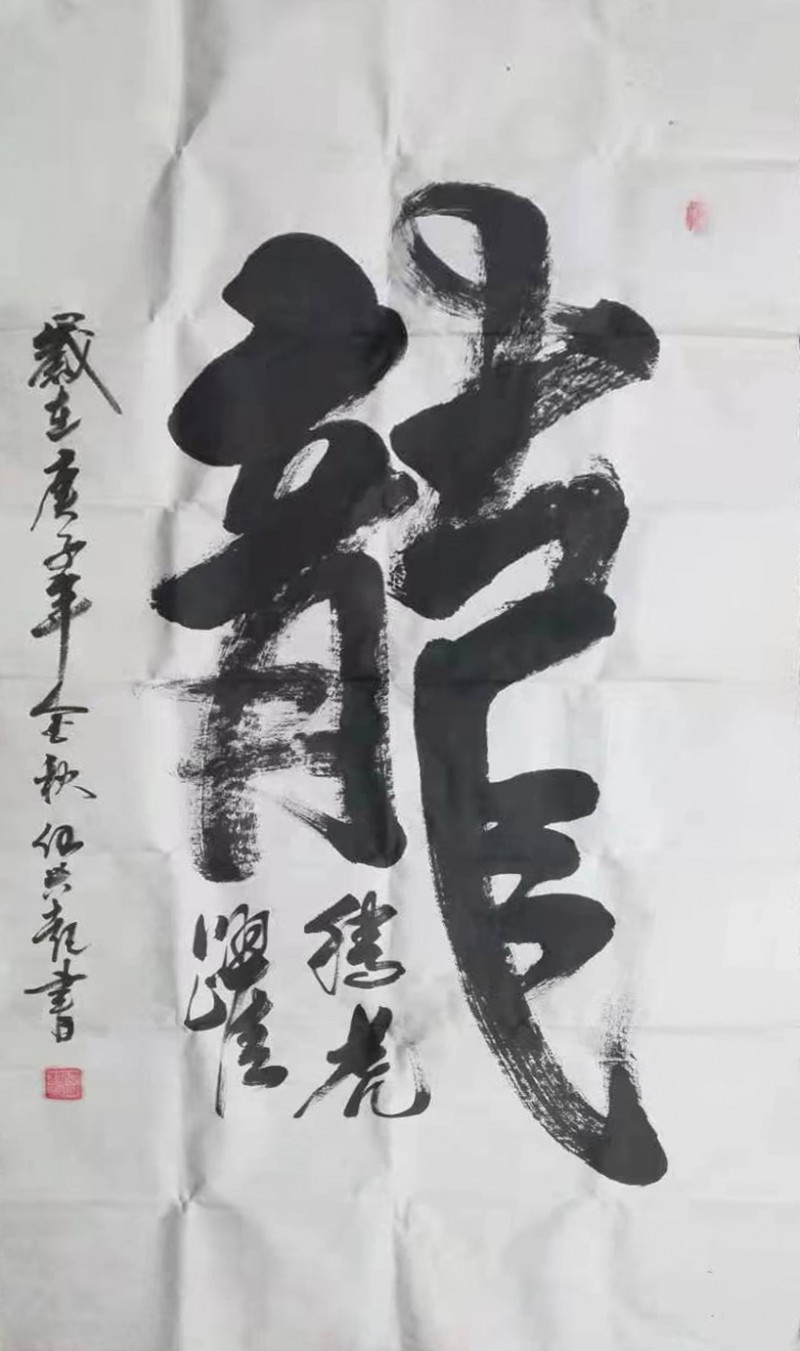 龍
騰虎
躍
歲在庚子年金秋任其乾書